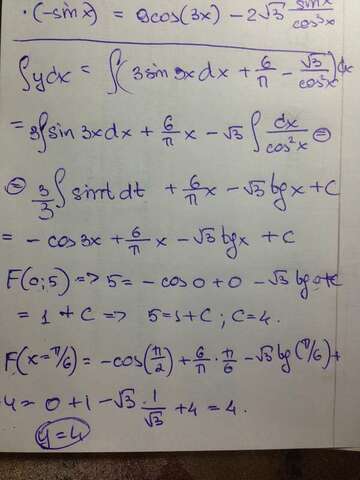 ·(-sin x) = 9cos(3x) - 2√3 sinx/cos³x
∫ydx = ∫(3sin3xdx + 6/π - √3/cos²x)dx
= 3∫sin3xdx + 6/π x - √3 ∫dx/cos²x =
= 3/3 ∫sintdt + 6/π x - √3 tgx + C
= -cos3x + 6/π x - √3 tgx + C
F(0;5) => 5 = -cos0 + 0 - √3 tg0+C
= 1 + C => 5=1+C; C=4.
F(x=π/6) = -cos(π/2) + 6/π · π/6 - √3 tg(π/6)+
4 = 0+1-√3 · 1/√3 + 4 = 4.
y=4